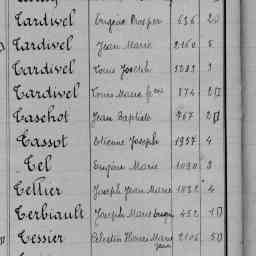 Tardivel Eugène Prosper 636 2
Tardivel Jean Marie 2160 5
Tardivel Louis Joseph 3
Tardivel Louis Marie 874 2
Taschot Jean Baptiste 767 2
Tassot Etienne Joseph 1957 4
Tel Eugène Marie 1090 3
Tellier Joseph Jean Marie 1032 4
Terbiault Joseph Marie Eugène 452 1
Tessier Célestin Pierre Marie Jean 2106 5